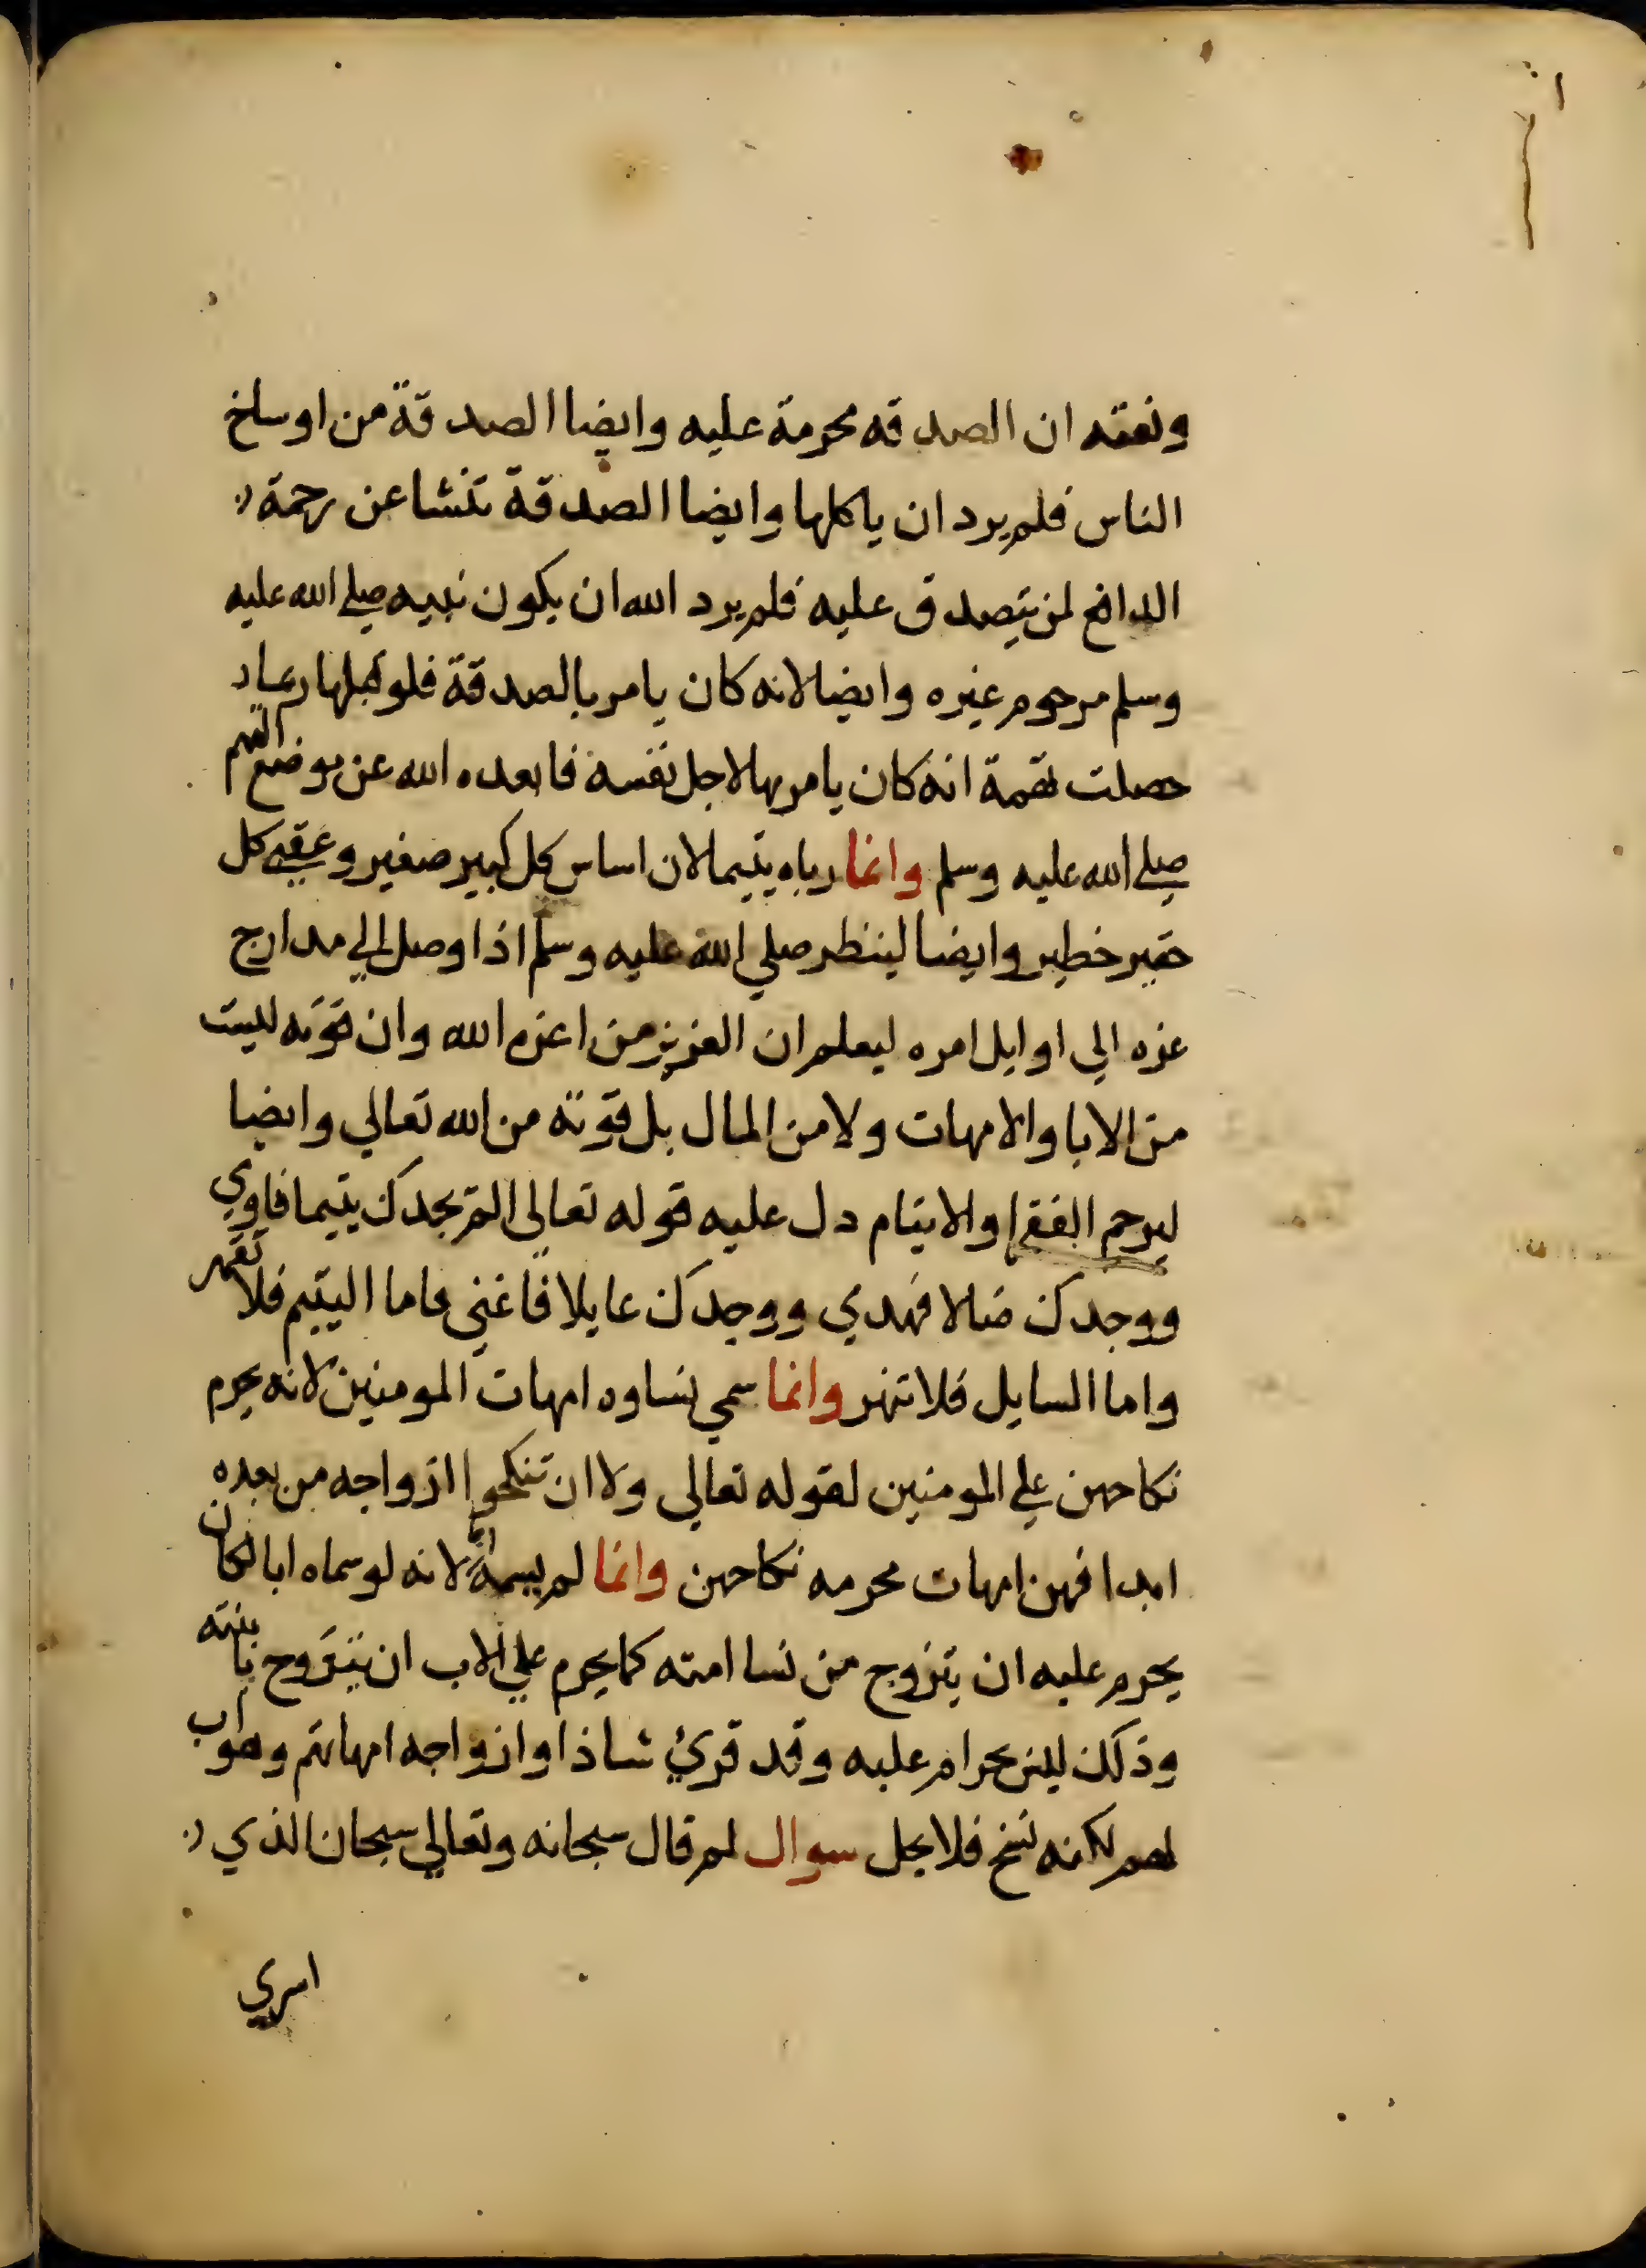 ونعته ان الصدقه محرمة عليه وايضا الصدقة من اوساخ
الناس فلم يرد ان ياكلها وايضا الصدقة تنشا عن رحمة
الدافع لمن يتصدق عليه فلم يرد الله ان يكون نبيه صلي الله عليه
وسلم مرحوم غيره وايضا لانه كان يامر بالصدقة فلو قبلها
حصلت تهمة انه كان يامر بها لاجل نفسه فابعده الله عن موضع التهم
صلي الله عليه وسلم وانما رباه يتيما لان اساس كل كبير صغير وعقبي كل
حقير خطير وايضا لينظر صلي الله عليه وسلم اذا وصل الي مدارج
عزه الي اوايل امره ليعلم ان العزيز من اعزه الله وان قوته ليست
من الابا والامهات ولا من المال بل قوته من الله تعالي وايضا
ليرحم الفقرا والايتام دل عليه قوله تعالي الم يجدك يتيما فاوي
ووجدك ضالا فهدي ووجدك عايلا فاغني فاما اليتيم فلا تقهر
واما السايل فلا تنهر وانما سمي نساوه امهات المومنين لانه يحرم
نكاحهن علي المومنين لقوله تعالي ولا ان تنكحوا ازواجه من بعده
ابدا فهن امهات محرمه نكاحهن وانما لم يسمه ابا لانه لو سماه ابا لكان
يحرم عليه ان يتزوج من نسا امته كما يحرم علي الاب ان يتزوج بابنته
وذلك ليس بحرام عليه وقد قرئ شاذا وازواجه امهاتهم وهو اب
لهم لكنه نسخ فلا يحل سوال لم قال سبحانه وتعالي سبحان الذي
اسري